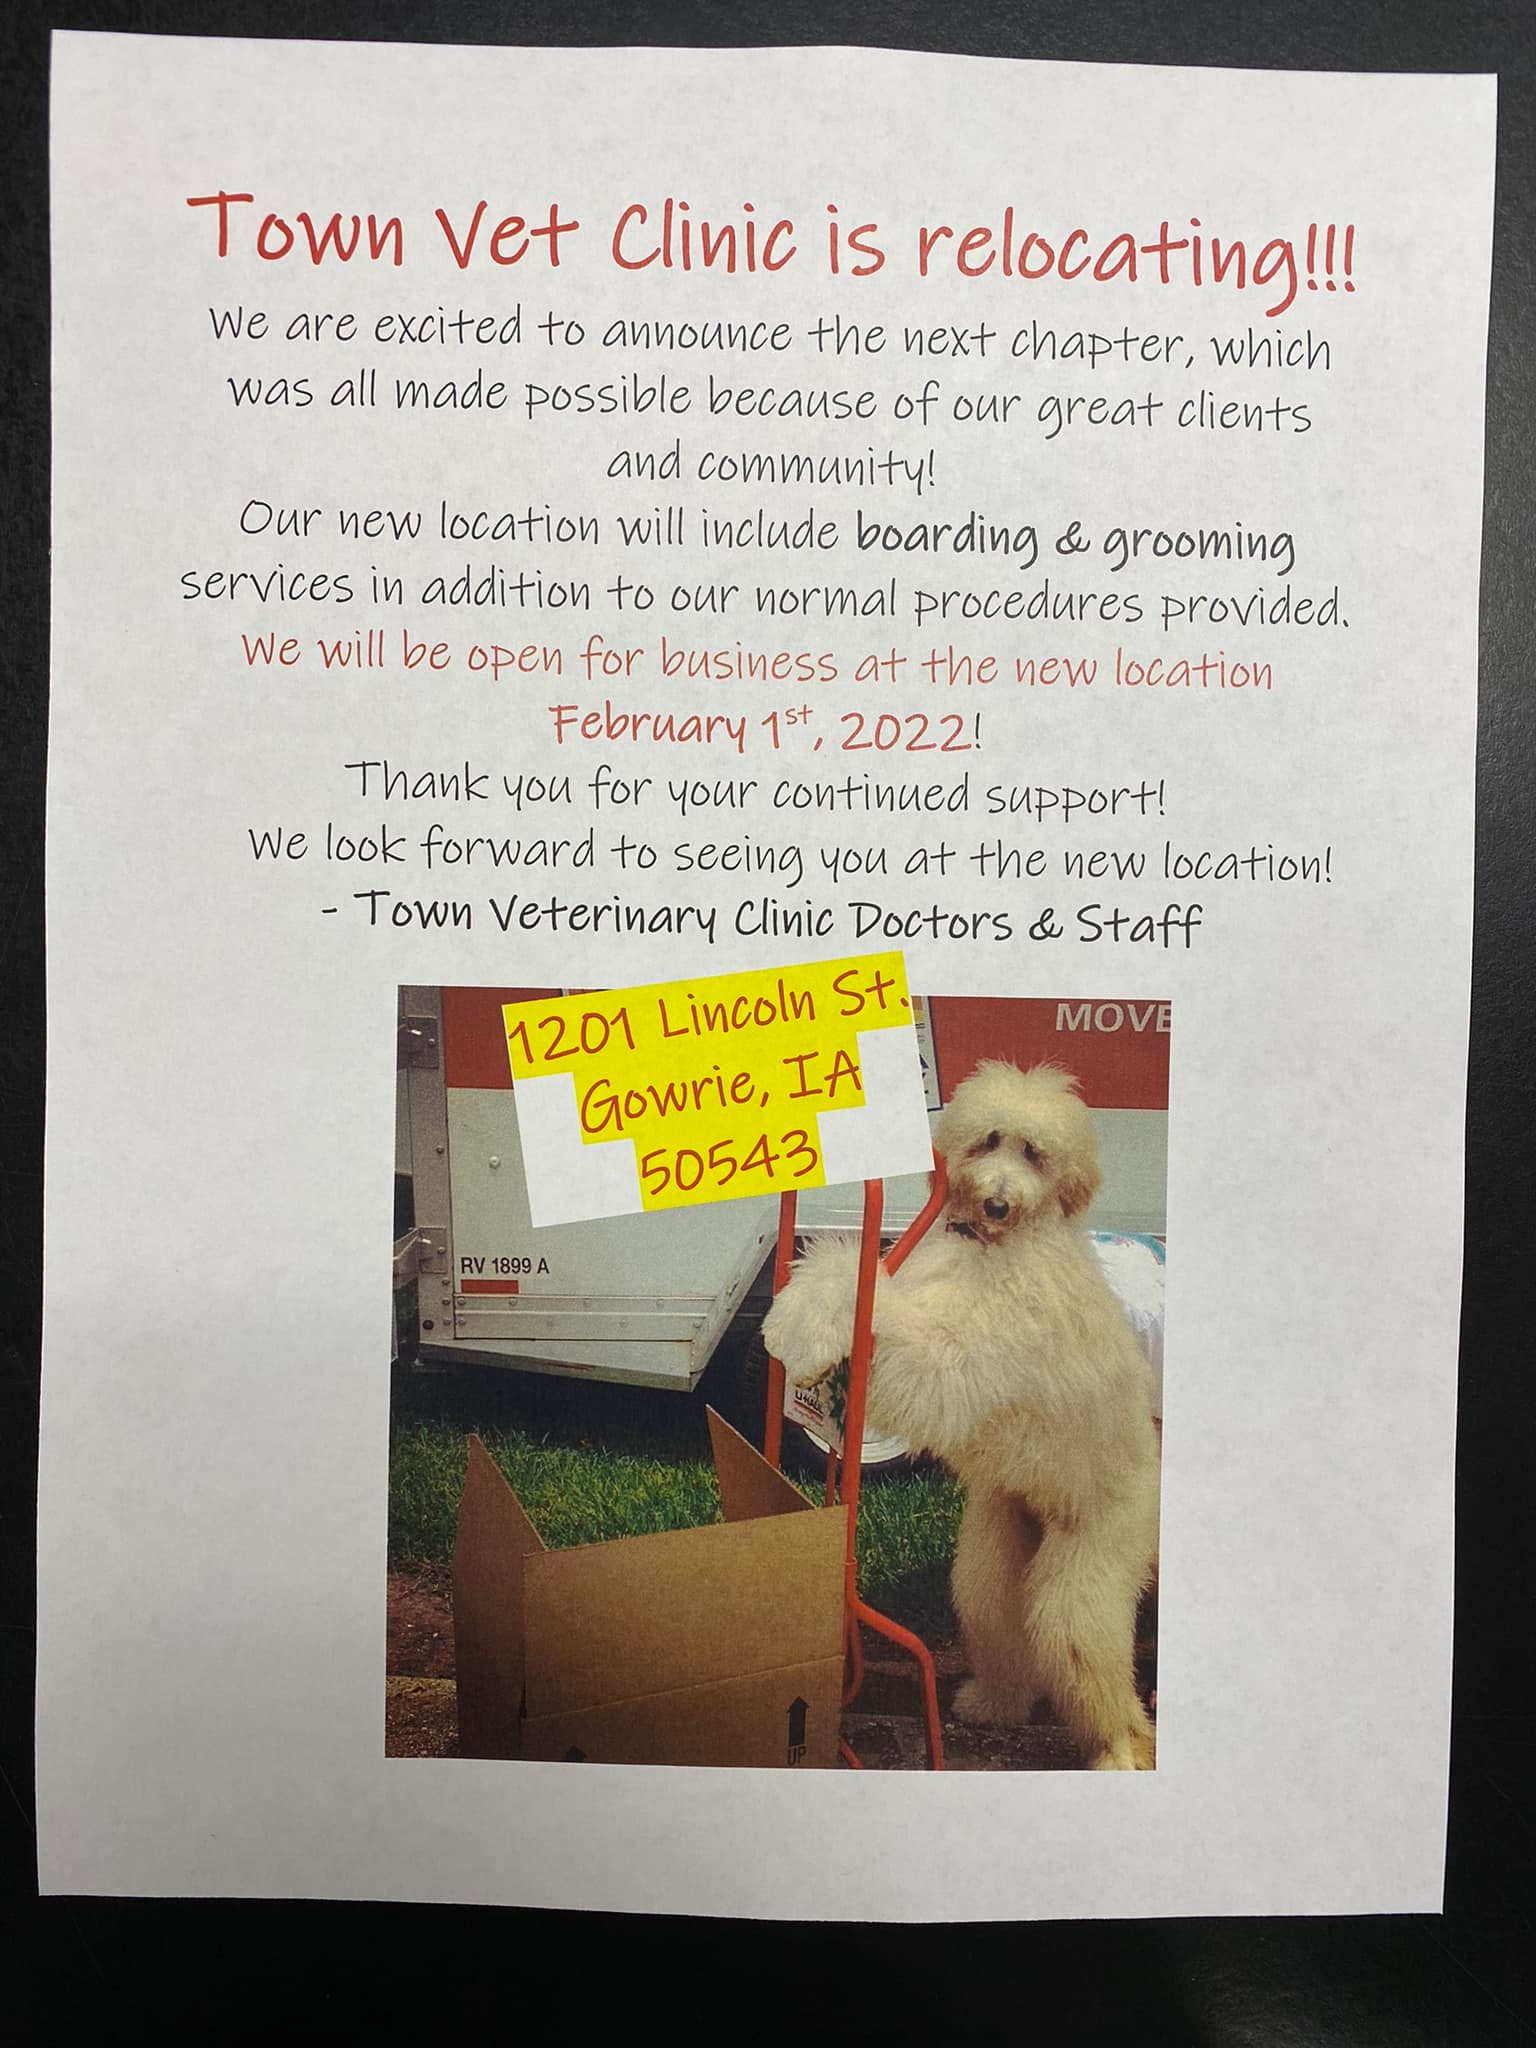 Town Vet Clinic is relocating!!!
We are excited to announce the next chapter, which
was all made possible because of our great clients
and community!
Our new location will include boarding & grooming
services in addition to our normal procedures provided.
We will be open for business at the new location
February 1st, 2022!
Thank you for your continued support!
We look forward to seeing you at the new location!
- Town Veterinary Clinic Doctors & Staff
1201 Lincoln St.
Gowrie, IA
50543
MOVE
RV 1899 A
U-HAUL
UP